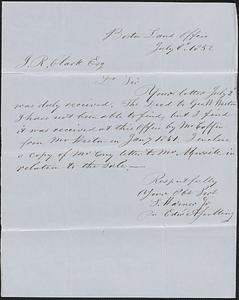 Boston Land Office
July 6. 1852
J. R. Clark Esq
Dr Sir
Your letter July 2d
was duly received. The Deed to Geo W
I have not been able to find, but I find
it was received at this Office by Mr Coffin
from Mr in Jany 1841. I enclose
a copy of Mr letter to Mr in
relation to the Sale.
Respectfully
Your Obt Servt
J. Warner Jr